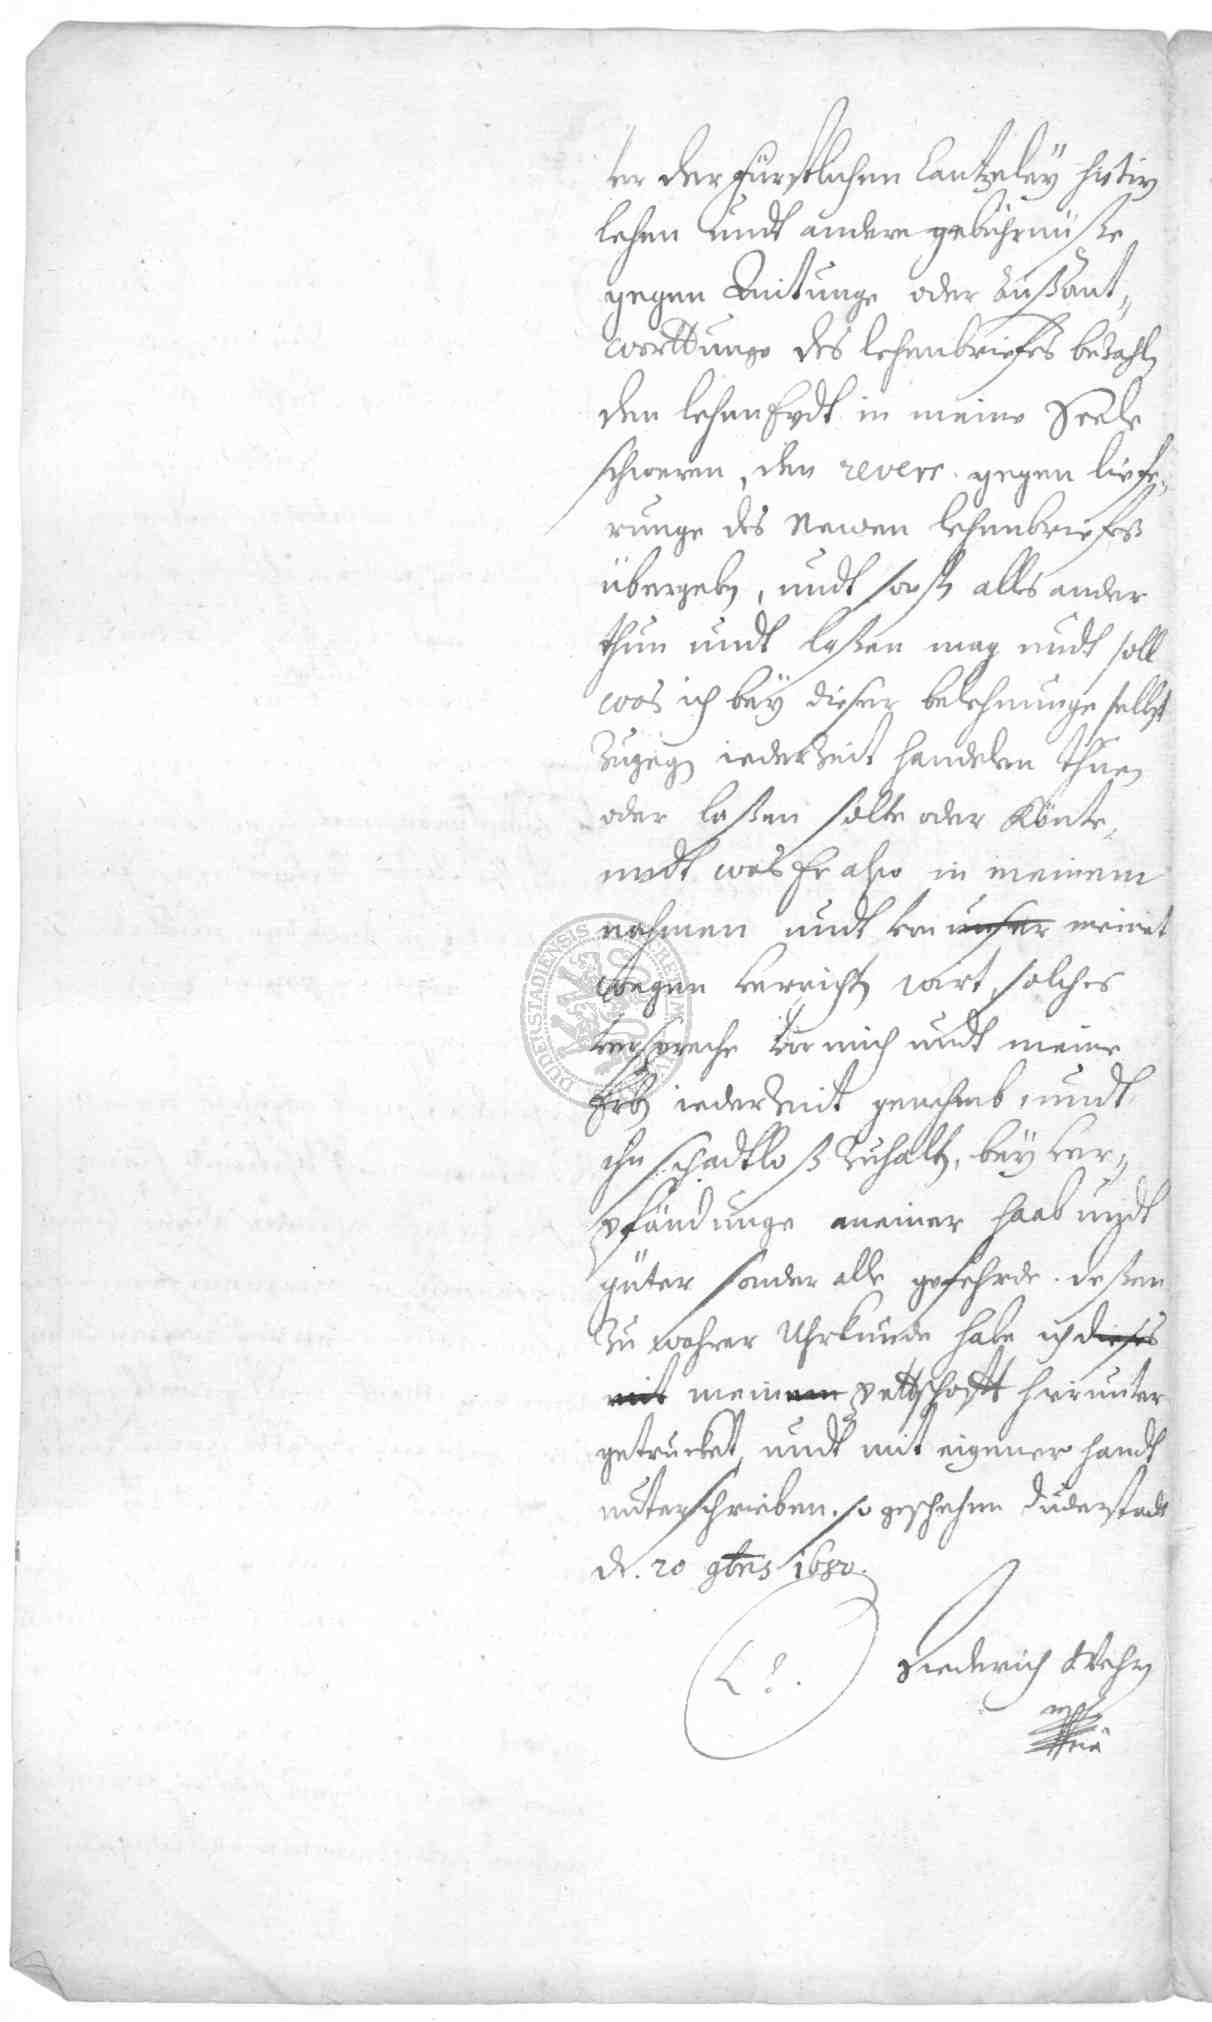 ter der Fürstlichen Cantzeley
lehen undt andere gebührnüße
gegen Quitunge oder außant„
worttunge des lehenbriefes bezahlen
den lehen Eydt in meine Seele
schweren, den revers. gegen liefe„
runge des Newen lehenbriefes
übergeben, undt sonsten alles ander
thun undt laßen mag undt soll
was ich bey dieser belehnunge selbst
Zugegen iederZeit handelen thuen
oder laßen solte oder Könte,
undt was Er also in meinem
nahmen undt von unser meinet
wegen verrichten wirt, solches
verspreche vor mich undt meine
Erben iederZeit genehmb, undt
ihn schadtloß Zuhalten, bey ver„
pfändunge meiner haab undt
güter sonder alle gefehrde. deßen
Zu wahrer Uhrkunde habe ich dieses
mit meinem pettschafft hierunter
getrucket, undt mit eigener handt
unterschrieben. so geschehen Duderstadt
d. 20 9bris 1680.
L S.
Diederich Wehr
mppria
DUDERSTADIENSIS